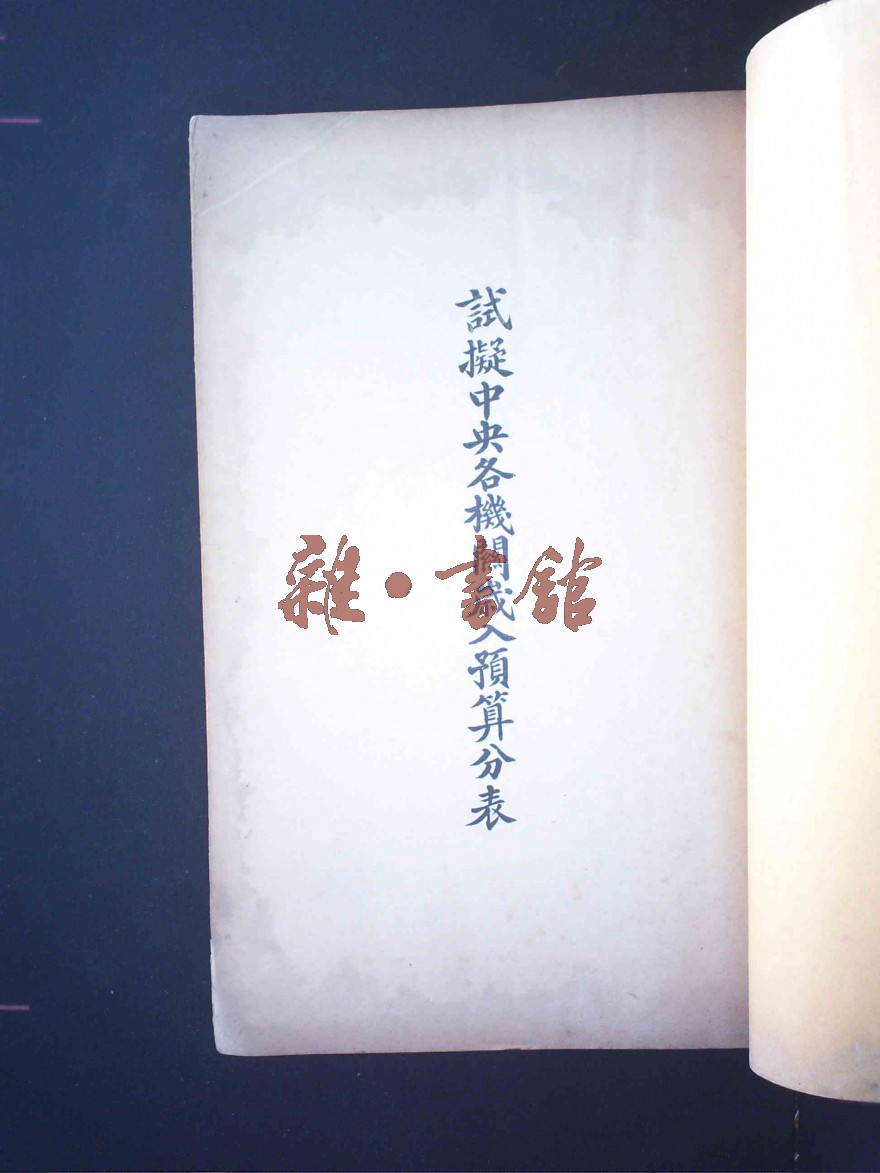 試擬中央各機關歲入預算分表
雜·書館